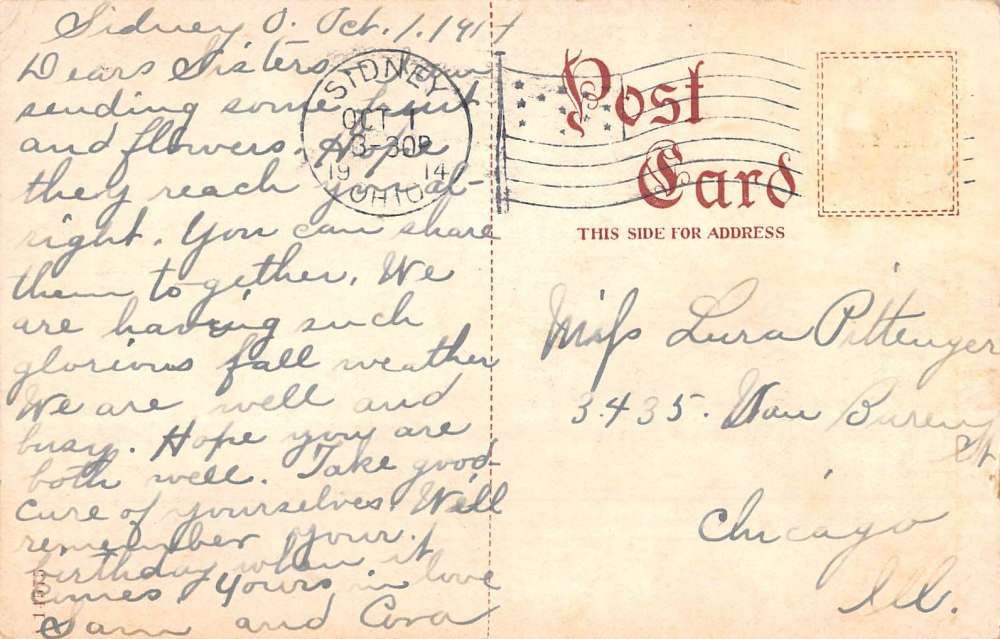 Sidney O. Oct. 1. 1914
Dears Sisters
sending some fruit
and flowers. Hope
they reach you al-
right. You can share
them to gether. We
are having such
glorious fall weather
We are well and
busy. Hope you are
both well. Take good
cure of yourselves We'll
remember your
birthday when it
comes. Yours in love
Sam and Cora
SIDNEY
OCT 1
3-30P
19 14
OHIO
Post
Card
THIS SIDE FOR ADDRESS
Miss Lura Pittenger
3435. Van Buren
St
Chicago
Ill.